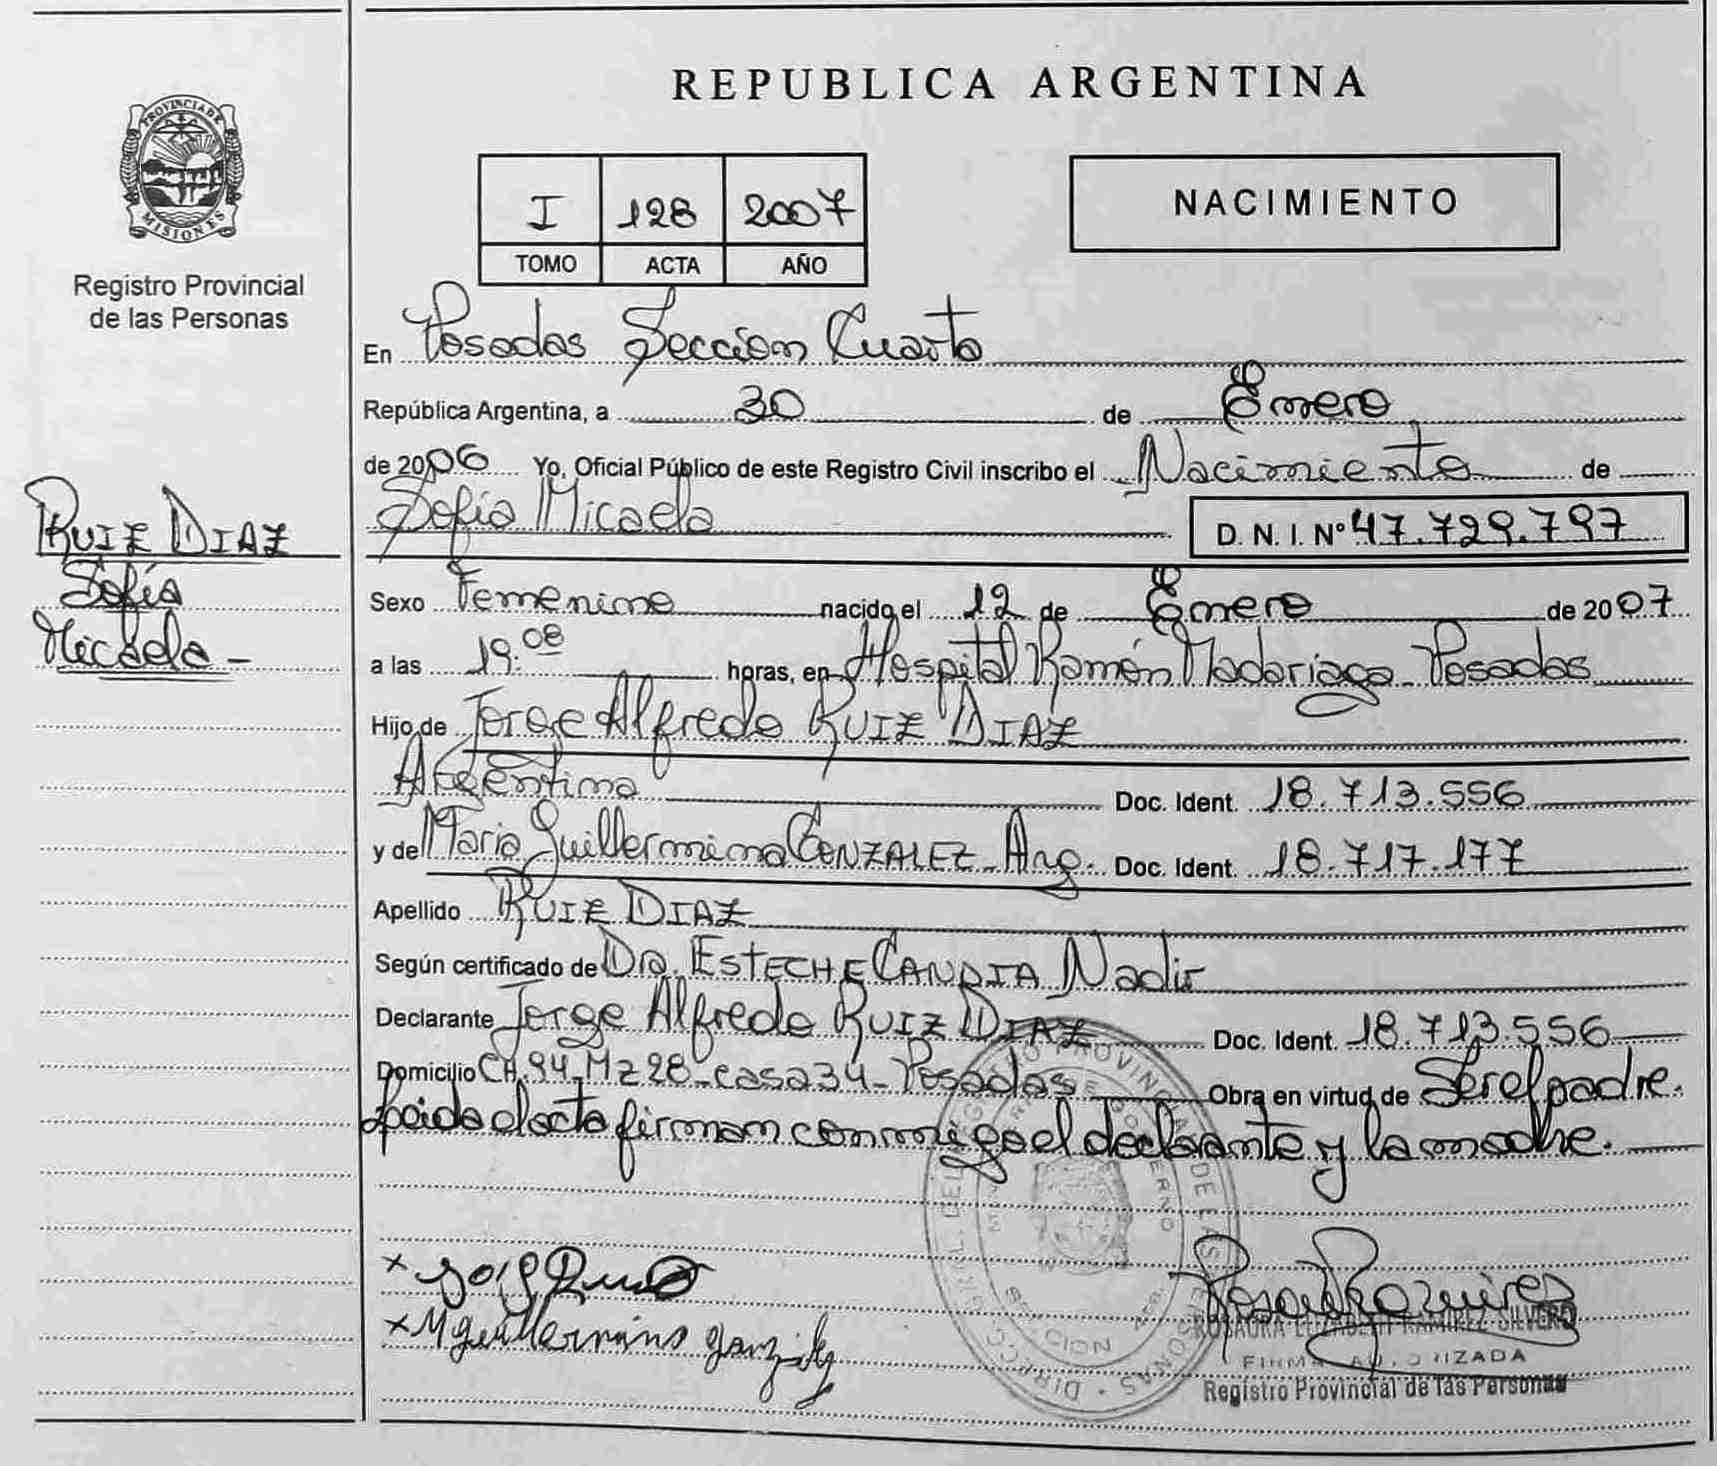 REPUBLICA ARGENTINA
PROVINCIA DE
MISIONES
Registro Provincial
de las Personas
I 128 2007
TOMO ACTA AÑO
NACIMIENTO
En Posadas Seccion Cuarta
República Argentina, a 30 de Enero
de 2006 Yo, Oficial Público de este Registro Civil inscribo el Nacimiento de
Sofía Micaela D. N. I. Nº 47.729.797
RUIZ DIAZ
Sofía
Micaela -
Sexo Femenino nacido el 12 de Enero de 2007
a las 19:08 horas, en Hospital Ramón Madariaga - Posadas
Hijo de Jorge Alfredo RUIZ DIAZ
Argentina Doc. Ident. 18.713.556
y de Maria Guillermina GONZALEZ - Arg. Doc. Ident. 18.717.177
Apellido RUIZ DIAZ
Según certificado de Dra. ESTECHE CANDIA Nadir
Declarante Jorge Alfredo RUIZ DIAZ Doc. Ident. 18.713.556
Domicilio CH.94-Mz28-casa34-Posadas Obra en virtud de Ser el padre.
Leida el acta firman conmigo el declarante y la madre.
ROSAURA ELIZABETH RAMIREZ SILVERO
FIRMA AUTORIZADA
Registro Provincial de las Personas